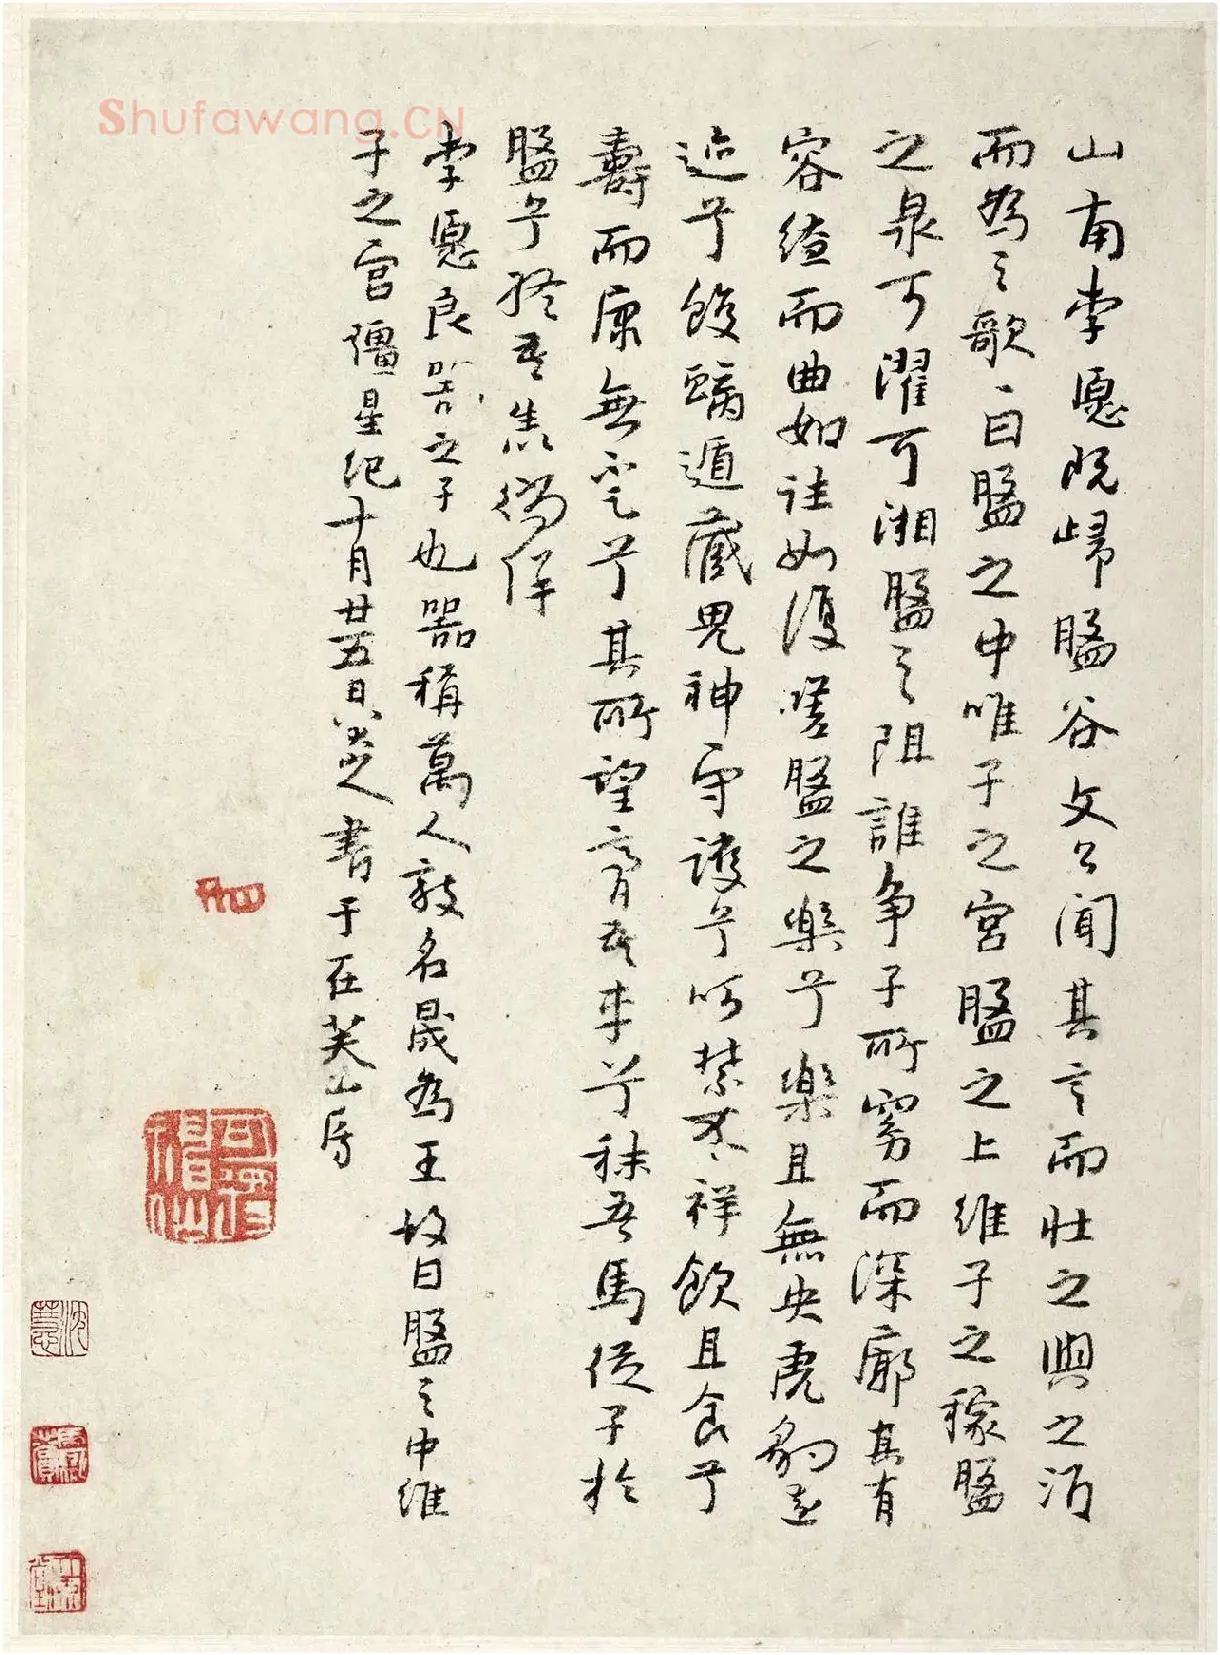 山南李愿既歸盤谷文公聞其言而壯之與之酒
而為之歌曰盤之中唯子之宮盤之上維子之稼盤
之泉可濯可湘盤之阻誰爭子所窈而深廓其有
容繚而曲如往如復嗟盤之樂兮樂且無央虎豹遠
迹兮蛟螭遁藏鬼神守護兮呵禁不祥飲且食兮
壽而康無不足兮其所望膏吾車兮秣吾馬從子於
盤兮終吾生徜徉
李愿良器之子也器稱萬人敵名晟為王故曰盤之中維
子之宮彊星紀十月廿五日八大山人書于在芙山房
Shufawang.CN